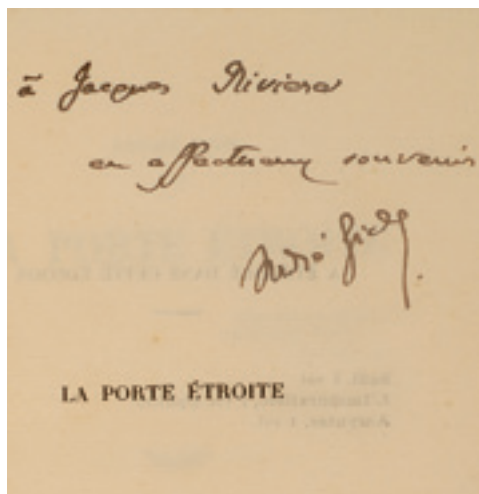 à Jacques Rivière
en affectueux souvenir
André Gide.
LA PORTE ÉTROITE